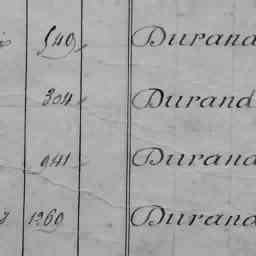 540 Durand
304 Durand
941 Durand
1260 Durand